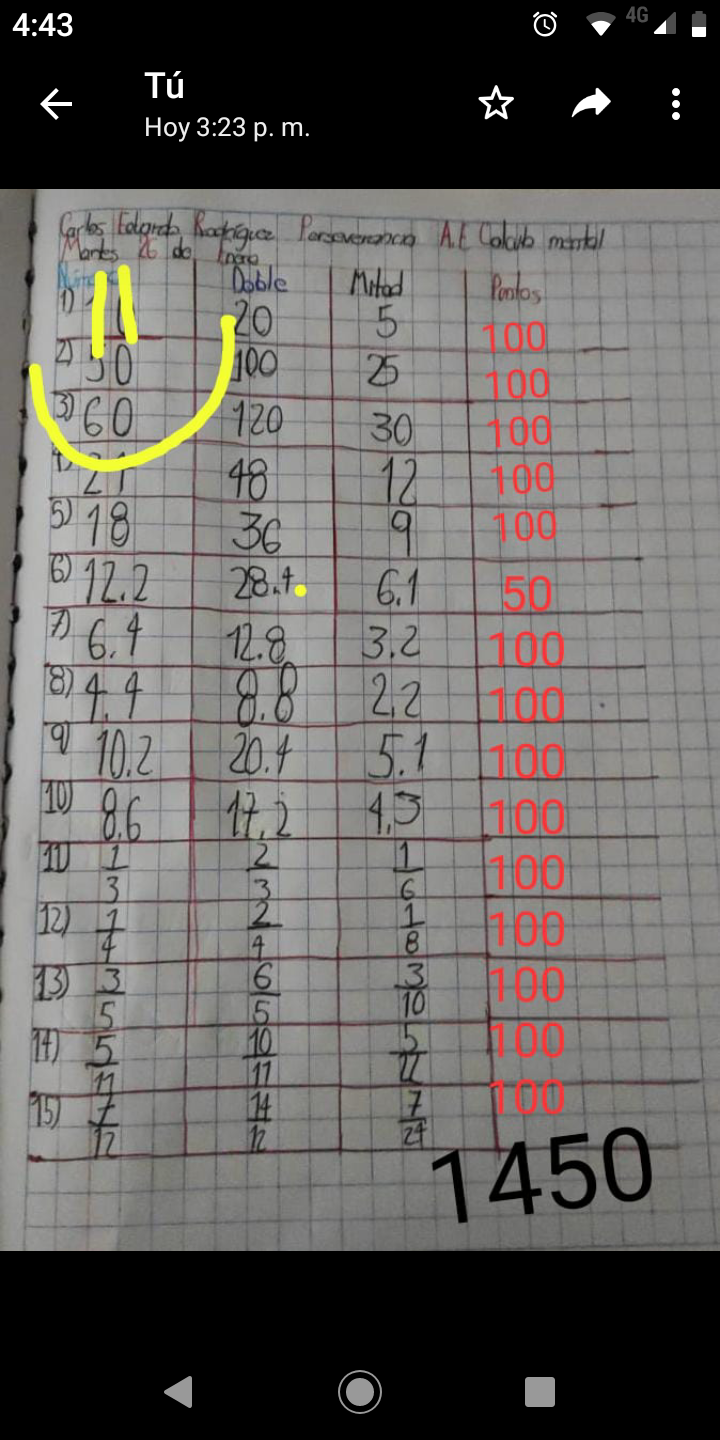 4:43
4G
Tú
Hoy 3:23 p. m.
Carlos Eduardo Rodríguez Perseverancia A.E Calculo mental
Martes 26 de Enero
Doble Mitad Puntos
1) 20 5 100
2) 50 100 25 100
3) 60 120 30 100
48 12 100
5) 18 36 9 100
6) 12.2 28.4 6.1 50
7) 6.4 12.8 3.2 100
8) 4.4 8.8 2.2 100
9) 10.2 20.4 5.1 100
10) 8.6 17.2 4.3 100
11) 1/3 2/3 1/6 100
12) 1/4 2/4 1/8 100
13) 3/5 6/5 3/10 100
14) 5/11 10/11 5/22 100
15) 7/12 14/12 7/24 100
1450